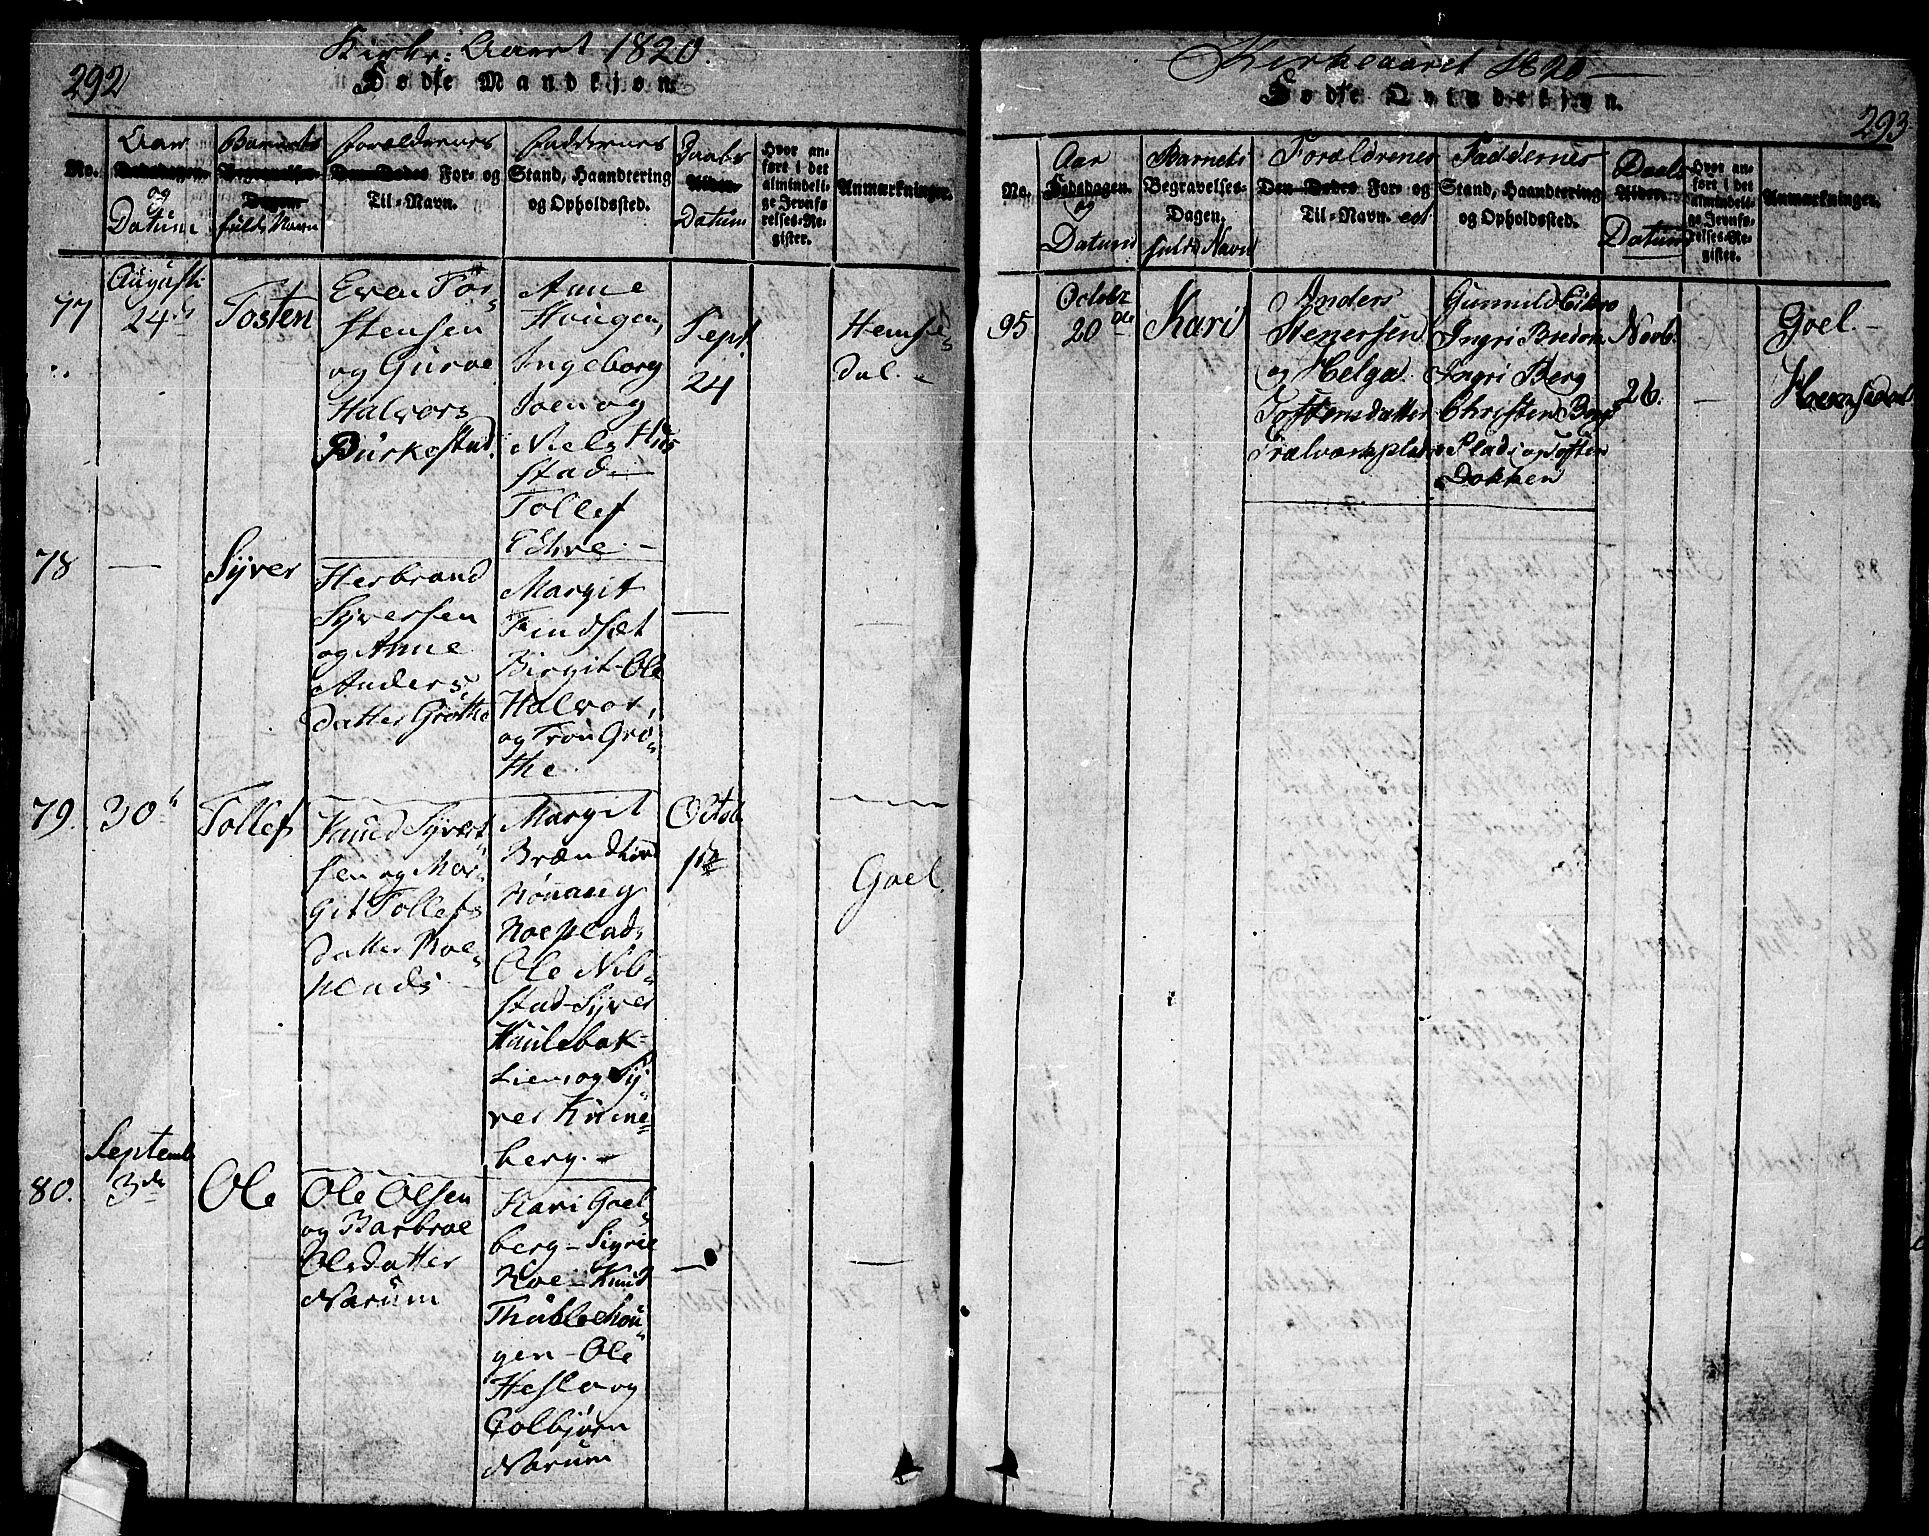 292
Kirke: Aaret 1820.
Døde Mandkiøn
No.
Aar
Dødsdagen.
og
Datum
Barnets
Begravelses-
Dagen
fulde Navn
Forældrenes
Den Dødes For- og
Til-Navn.
Faddernes
Stand, Haandtering
og Opholdssted.
Daabs
Alder.
Datum
Hvor an-
ført i det
almindeli-
ge Jevnfø-
relses-Re-
gister.
Anmærkninger.
77
August
24de
Tosten
Even Tor-
stensen
og Guroe
Halvors
Birkestad.
Anne
Haugen,
Ingeborg
Toen og
Niels Hus
stad
Tollef
Ethre
Sept.
24
Hemse-
dal.
78
—
Syver
Herbrand
Syversen
og Anne
Anders
datter Grøthe
Margit
Findsæt
Birgit-Ole
Halvor,
og Tron Grø-
the.
—
—
79.
30
Tollef
Knud Syvert-
sen og Mar-
git Tollefs
datter Roe-
plads
Margit
Brændhovd
Rønnaug
Roeplads
Ole Nib-
stad-Syver
Huulebak-
Lien og Sy-
ver Kinne-
berg.
Octob
1ste
Goel
80.
Septemb
3de
Ole
Ole Olsen
og Barbroe
Olsdatter
Narum
Kari Goel-
berg - Sigrie
Roe - Knud
Thuble Mou-
gen - Ole
Hesla og
Colbjørn
Narum
—
—
Kirkeaaret 1820
Døde Qvindekiøn.
293
No.
Aar
Dødsdagen.
og
Datum
Barnets
Begravelses-
Dagen.
fulde Navn
Forældrenes
Den Dødes For- og
Til-Navn.
Faddernes
Stand, Haandtering
og Opholdssted.
Daabs
Alder.
Datum
Hvor an-
ført i det
almindeli-
ge Jevnfø-
relses-Re-
gister.
Anmærkninger.
95
Octobr
20de
Kari
Anders
Stenersen
og Helga
Tostensdatter
Trælvands plads
Gunnild Eikro
Ingri Bredon
Ingri Berg
Christen Berg
Plads og Tosten
Dokken
Novb.
26.
—
Goel.
Hoemsedal